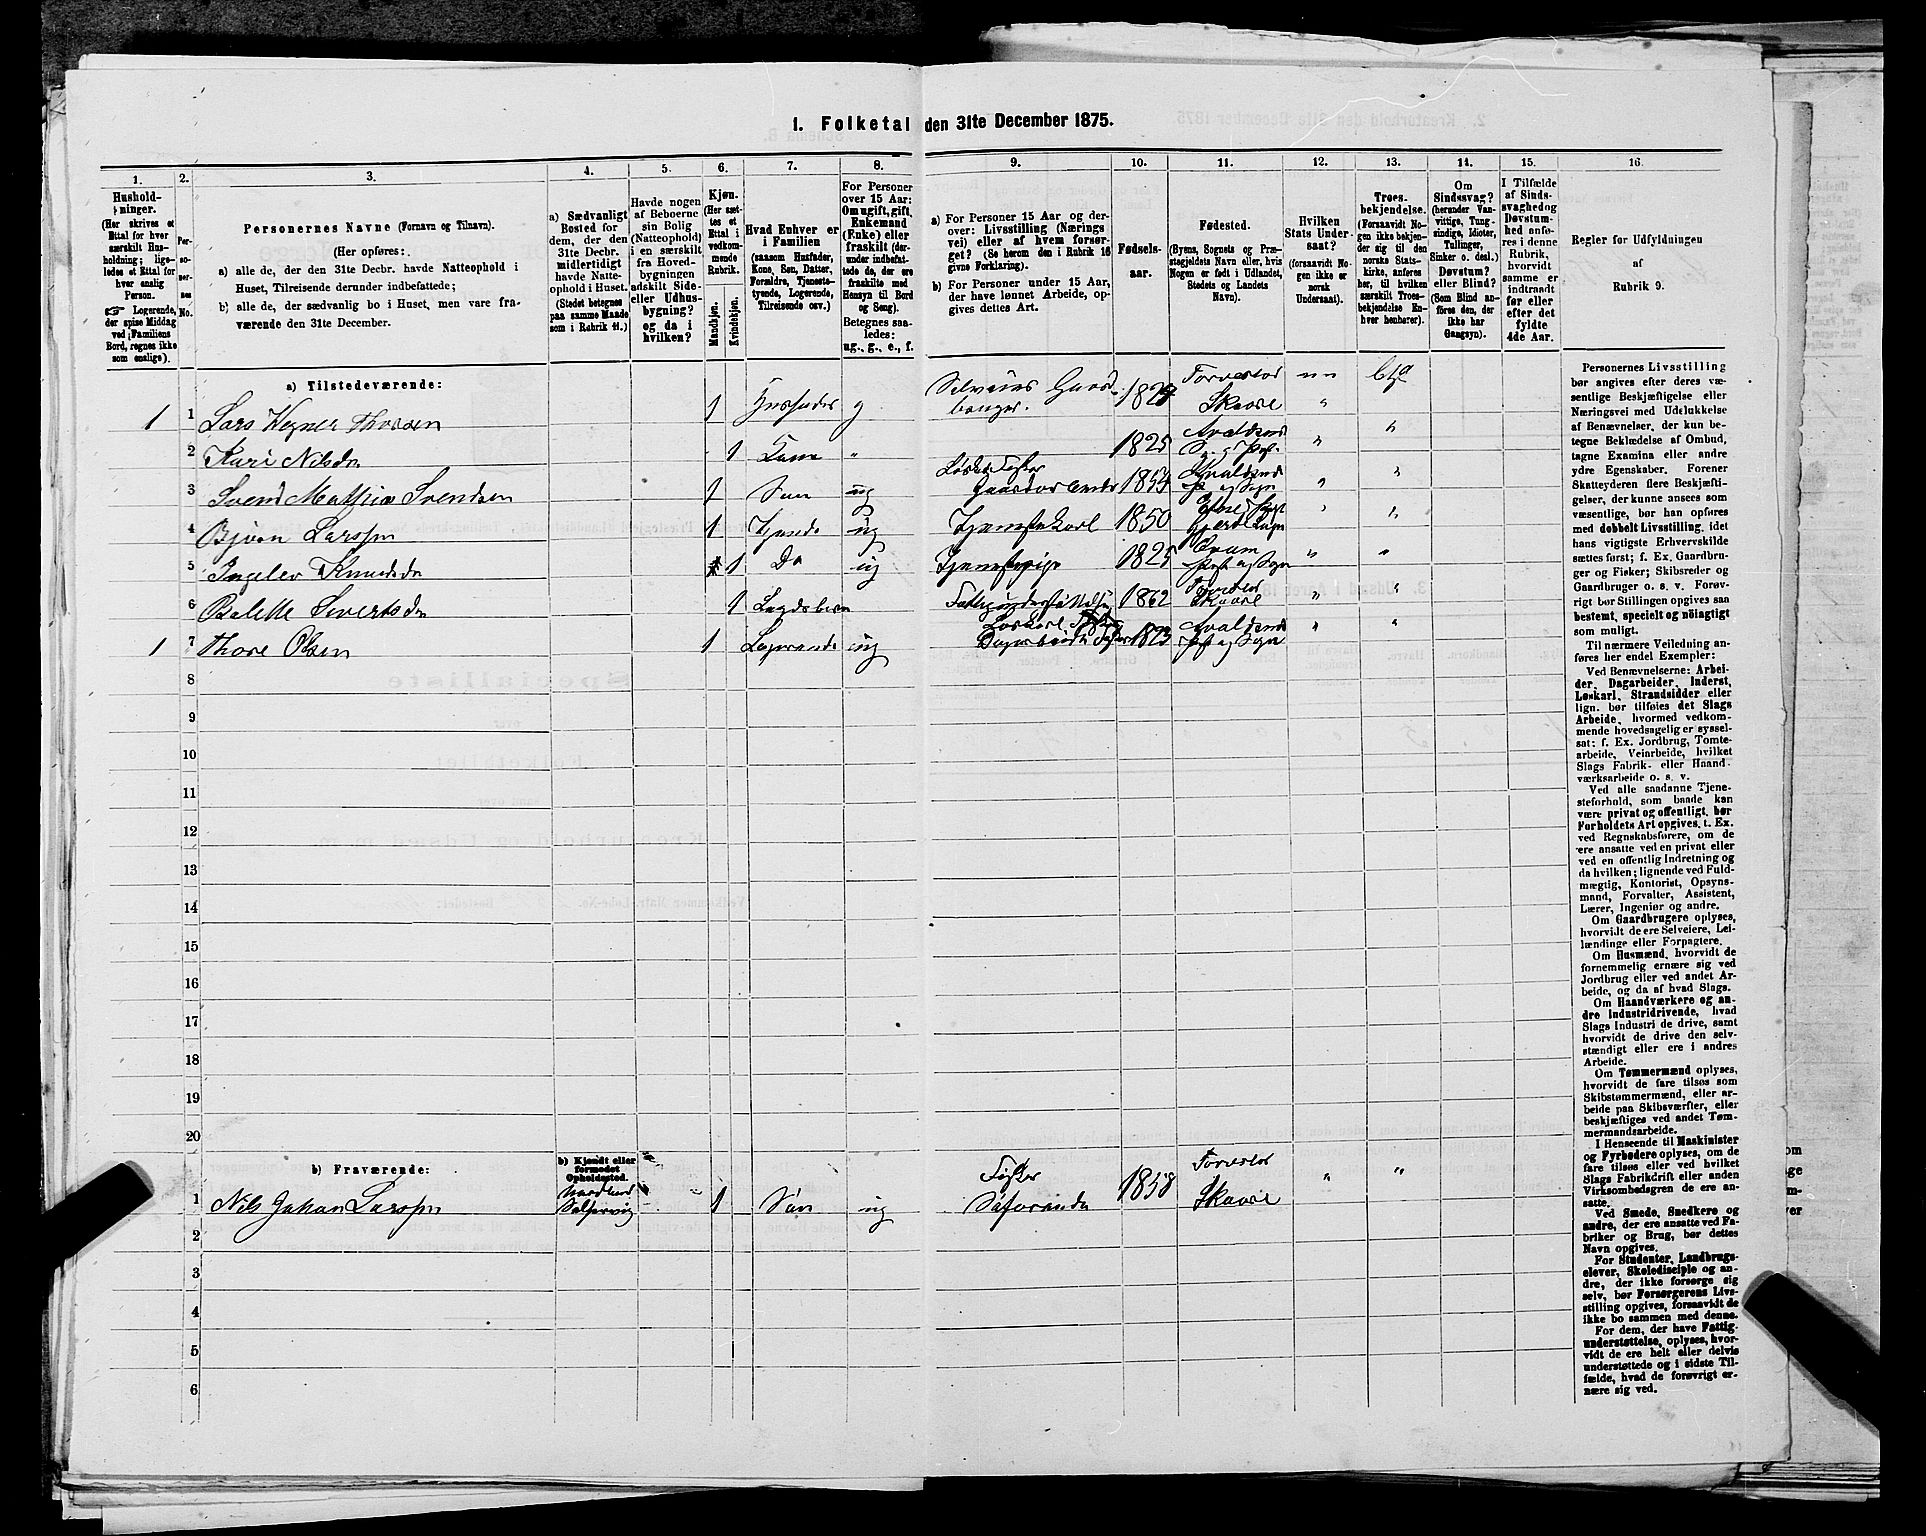 1. Folketal den 31te December 1875.
1. 2. 3. 4. 5. 6. 7. 8. 9. 10. 11. 12. 13. 14. 15. 16.
Hushold-
ninger.
(Her skrives et
Ettal for hver
særskilt Hus-
holdning; lige-
ledes et Ettal for
hver enslig
Person.
☞ Logerende,
der spise Middag
ved Familiens
Bord, regnes ikke
som enslige).
Per-
so-
ner-
nes
No.
Personernes Navne (Fornavn og Tilnavn).
(Her opføres:
a) alle de, der den 31te Decbr. havde Natteophold i
Huset, Tilreisende derunder indbefattede;
b) alle de, der sædvanlig bo i Huset, men vare fra-
værende den 31te December.
a) Sædvanligt
Bosted for
dem, der den
31te Decbr.
midlertidigt
havde Natte-
ophold i Huset.
(Stedet betegnes
paa samme Maade
som i Rubrik 11.)
Havde nogen
af Beboerne
sin Bolig
(Natteophold)
i en særskilt
fra Hoved-
bygningen
adskilt Side-
eller Udhus-
bygning?
og da i
hvilken?
Kjøn.
(Her sæt-
tes et
Ettal i
vedkom-
mende
Rubrik.
Mandkjøn.
Kvindekjøn.
Hvad Enhver er
i Familien
(saasom Husfader,
Kone, Søn, Datter,
Forældre, Tjeneste-
tyende, Logerende,
Tilreisende osv.)
For Personer
over 15 Aar:
Om ugift, gift,
Enkemand
(Enke) eller
fraskilt (der-
under indbefat-
tede de, der ere
fraskilte med
Hensyn til Bord
og Seng).
Betegnes saa-
ledes:
ug., g., e., f.
a) For Personer 15 Aar og der-
over: Livsstilling (Nærings
vei) eller af hvem forsør-
get? (Se herom den i Rubrik 16
givne Forklaring).
b) For Personer under 15 Aar,
der have lønnet Arbeide, op-
gives dettes Art.
Fødsels-
aar.
Fødested.
(Byens, Sognets og Præ-
stegjeldets Navn eller, hvis
Nogen er født i Udlandet,
Stedets og Landets
Navn).
Hvilken
Stats Under-
saat?
(forsaavidt No-
gen ikke er
norsk
Undersaat).
Troes-
bekjendelse.
(Forsaavidt No-
gen ikke bekjen-
der sig til den
norske Stats-
kirke, anføres
her, til hvilken
særskilt Troes-
bekjendelse En-
hver henhører).
Om
Sindssvag?
(herunder Van-
vittige, Tung-
sindige, Idioter,
Tullinger,
Sinker o. desl.)
Døvstum?
eller Blind?
(Som Blind an-
føres den, der
ikke har
Gangsyn).
I Tilfælde
af Sinds-
svaghed og
Døvstum-
hed anfø-
res i denne
Rubrik,
hvorvidt
samme er
indtraadt
før eller
efter det
fyldte
4de Aar.
Regler for Udfyldningen
af
Rubrik 9.
a) Tilstedeværende:
1 1 Lars Wegner Thorsen 1 Husfader g Selveiens Gaard- 1829 Torvestad
Skaare
2 Kari Nilsdn 1 Kone " 1825 Avaldsnes
3 Svend Mathias Svendsen 1 Søn ug 1854 Avaldsnes
4 Bjørn Larssen 1 Tjende ug Tjenestekarl 1850
5 Ingelev Knudsdn 1 Do ug Tjenestepige 1825
6 Balette Sivertsdn 1 1862 Torvestad Skaare
7 1 Thore Olsen 1 Logerende ug 1823 Avaldsnes
8
9
10
11
12
13
14
15
16
17
18
19
20
b) Fraværende:
b) Kjendt eller
formodet
Opholdssted.
1 Nils Johan Larssen Nordland 1 Søn ug Fisker 1858 Torvestad
Søfarende Skaare
2
3
4
5
6
Personernes Livsstilling
bør angives efter deres væ-
sentlige Beskjæftigelse eller
Næringsvei med Udelukkelse
af Benævnelser, der kun be-
tegne Beklædelse af Ombud,
tagne Examina eller andre
ydre Egenskaber. Forener
Skatteyderen flere Beskjæfti-
gelser, der kunne ansees som
væsentlige, bør han opføres
med dobbelt Livsstilling, idet
hans vigtigste Erhvervskilde
sættes først; f. Ex. Gaardbru-
ger og Fisker; Skibsreder og
Gaardbruger o. s. v. Forøv-
rigt bør Stillingen opgives saa
bestemt, specielt og nöiagtigt
som muligt.
Til nærmere Veiledning an-
føres her endel Exempler:
Ved Benævnelserne: Arbei-
der, Dagarbeider, Inderst,
Løskarl, Strandsidder eller
lign. bør tilføies det Slags
Arbeide, hvormed vedkom-
mende hovedsagelig er syssel-
sat: f. Ex. Jordbrug, Tomte-
arbeide, Veiarbeide, hvilket
Slags Fabrik- eller Haand-
værksarbeide o. s. v.
Ved alle saadanne Tjene-
steforhold, som baade kan
være privat og offentligt, bør
Forholdets Art opgives, t. Ex.
ved Regnskabsførere, om de
ere ansatte ved en privat eller
ved en offentlig Indretning og
da hvilken; lignende ved Fuld-
mægtig, Kontorist, Opsyns-
mand, Forvalter, Assistent,
Lærer, Ingeniør og andre.
Om Gaardbrugere oplyses,
hvorvidt de ere Selveiere, Lei-
lændinge eller Forpagtere.
Om Husmænd, hvorvidt de
fornemmelig ernære sig ved
Jordbrug eller ved andet Ar-
beide, og da af hvad Slags.
Om Haandværkere og an-
dre Industridrivende, hvad
Slags Industri de drive, samt
hvorvidt de drive den selv-
stændigt eller ere i andres
Arbeide.
Om Tømmermænd oplyses,
hvorvidt de fare tilsøs som
Skibstømmermænd, eller ar-
beide paa Skibsværfter, eller
beskjæftiges ved andet Tøm-
mermandsarbeide.
I Henseende til Maskinister
og Fyrbødere oplyses, om de
fare tilsøs eller ved hvilket
Slags Fabrikdrift eller anden
Virksomhed de ere an-
satte.
Ved Smede, Snedkere og
andre, der ere ansatte ved Fa-
briker og Brug, bør dettes
Navn opgives.
For Studenter, Landbrugs-
elever, Skoledisciple og an-
dre, der ikke forsørge sig
selv, bør Forsørgerens Livs-
stilling opgives, forsaavidt de
ikke bo sammen med denne.
For dem, der have Fattig-
understøttelse, oplyses, hvor-
vidt de ere helt eller delvis
understøttede og i sidste Til-
fælde, hvad de forøvrigt er-
nære sig ved.